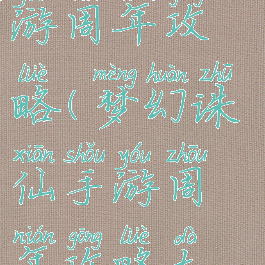 游周年攻
lüè mèng huàn zhū
略(梦幻诛
xiān shǒu yóu zhōu
仙手游周
nián gōng lüè dà
年攻略大